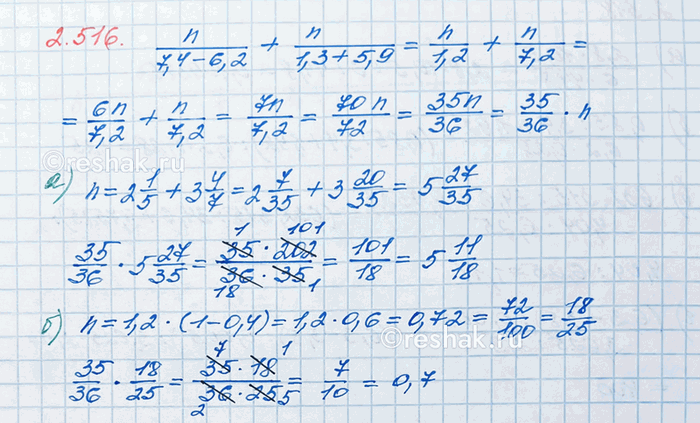 2.516. n/(7,4-6,2) + n/(1,3+5,9) = n/1,2 + n/7,2 =
= 6n/7,2 + n/7,2 = 7n/7,2 = 70n/72 = 35n/36 = 35/36 · n
©reshak.ru
а) n = 2 1/5 + 3 4/7 = 2 7/35 + 3 20/35 = 5 27/35
1 101
35/36 · 5 27/35 = (35 · 202)/(36 · 35) = 101/18 = 5 11/18
18 1
б) n = 1,2 · (1-0,4) = 1,2 · 0,6 = 0,72 = 72/100 = 18/25
©reshak.ru
7 1
35/36 · 18/25 = (35 · 18)/(36 · 25) = 7/10 = 0,7
2 5